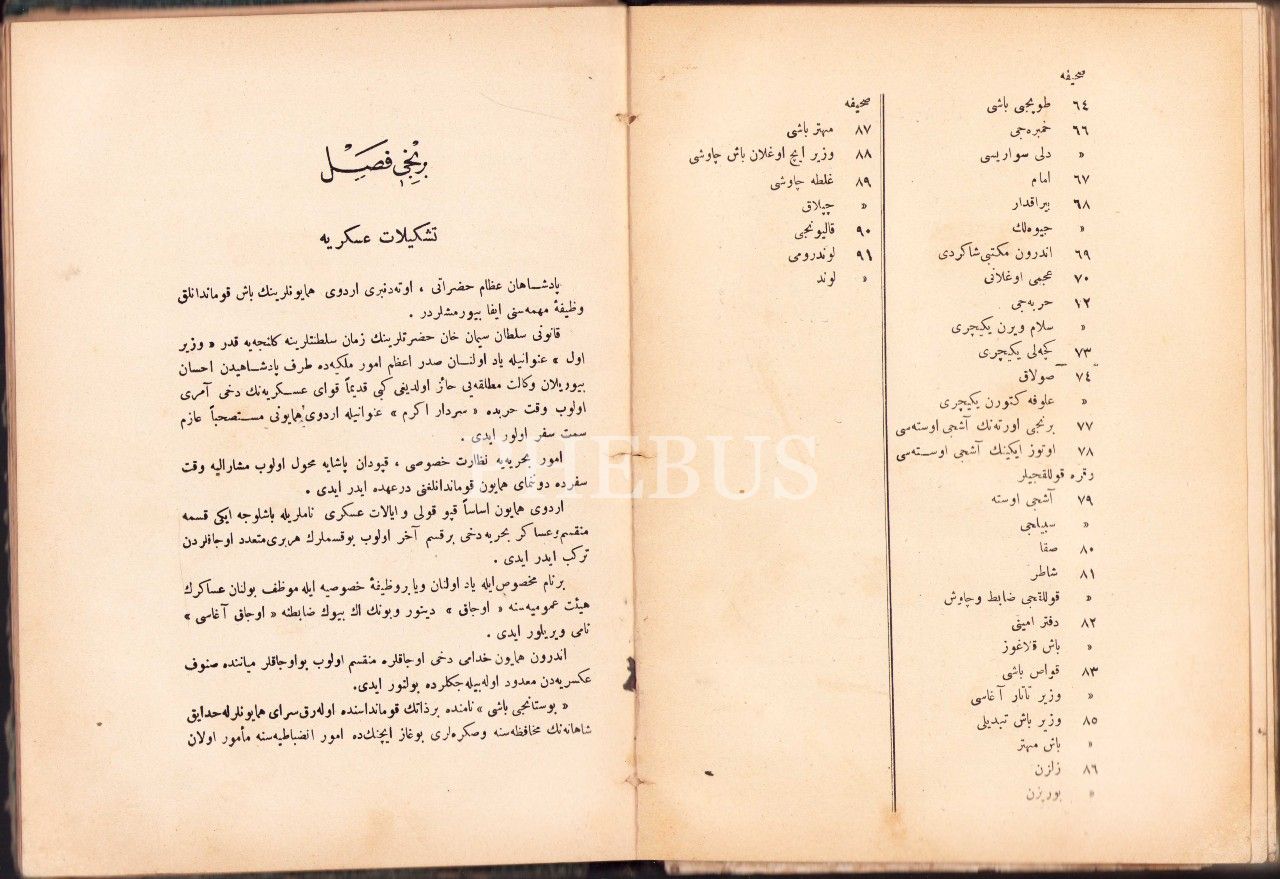 صحيفه
٦٤ طوپچی باشی
٦٦ خمبره‌جی
« دلی سواریسی
٦٧ امام
٦٨ بیراقدار
« جیوه‌لك
٦٩ اندرون مكتبی شاكردی
٧٠ عجمی اوغلانی
١٢ حربه‌جی
« سلام ویرن یكیچری
٧٣ كچه‌لی یكیچری
٧٤ صولاق
« علوفه كتورن یكیچری
٧٧ برنجی اورته‌نك آشجی اوسته‌سی
٧٨ اوتوز ایكینك آشجی اوسته‌سی
وقره قوللقجیلر
٧٩ آشجی اوسته
« سبیاجی
٨٠ صقا
٨١ شاطر
« قوللقجی ضابط وچاوش
٨٢ دفتر امینی
« باش قلاغوز
٨٣ قواص باشی
« وزیر تاتار آغاسی
٨٥ وزیر باش تبدیلی
« باش مهتر
٨٦ زلزن
« بوریزن
صحيفه
٨٧ مهتر باشی
٨٨ وزیر ایچ اوغلان باش چاوشی
٨٩ غلطه چاوشی
« چپلاق
٩٠ قالیونجی
٩١ لوندرومی
« لوند
برنجی فصل
تشكیلات عسكریه
پادشاهان عظام حضراتی ، اوته‌دنبری اردوی همایونلرینك باش قوماندانلق
وظیفۀ مهمه‌سنی ایفا بیورمشلردر .
قانونی سلطان سلیمان خان حضرتلرینك زمان سلطنتلرینه كلنجه‌یه قدر « وزیر
اول » عنوانیله یاد اولنان صدر اعظم امور ملكیه‌ده طرف پادشاهیدن احسان
بیوریلان وكالت مطلقه‌یی حائز اولدیغی كبی قدیماً قوای عسكریه‌نك دخی آمری
اولوب وقت حربده « سردار اكرم » عنوانیله اردوی همایونی مستصحباً عازم
سمت سفر اولور ایدی .
امور بحریه‌یه نظارت خصوصی ، قپودان پاشایه محول اولوب مشارالیه وقت
سفرده دوننمای همایون قوماندانلغنی درعهده ایدر ایدی .
اردوی همایون اساساً قپو قولی و ایالات عسكری ناملریله باشلوجه ایكی قسمه
منقسم وعساكر بحریه دخی برقسم آخر اولوب بوقسملرك هربری متعدد اوجاقلردن
تركب ایدر ایدی .
برنام مخصوص ایله یاد اولنان ویا بروظیفۀ خصوصیه ایله موظف بولنان عساكرك
هیئت عمومیه‌سنه « اوجاق » دینور وبونك اڭ بیوك ضابطنه « اوجاق آغاسی »
نامی ویریلور ایدی .
اندرون همایون خدامی دخی اوجاقلره منقسم اولوب بواوجاقلر میاننده صنوف
عكسریه‌دن معدود اوله‌بیله‌جكلرده بولنور ایدی.
« بوستانجی باشی » نامنده برذاتك قومانداسنده اوله‌رق سرای همایونلرله حدایق
شاهانه‌نك محافظه‌سنه وصكره‌لری بوغاز ایچنك‌ده امور انضباطیه‌سنه مأمور اولان
PHEBUS